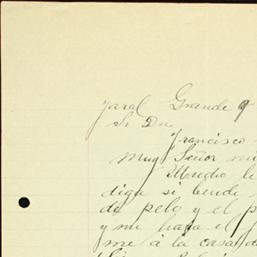 Jaral Grande 9
Sr Dn
Francisco
Muy Señor mi
Mucho le
diga si bende
de pelo y el p
y me haga el f
me á la casa d